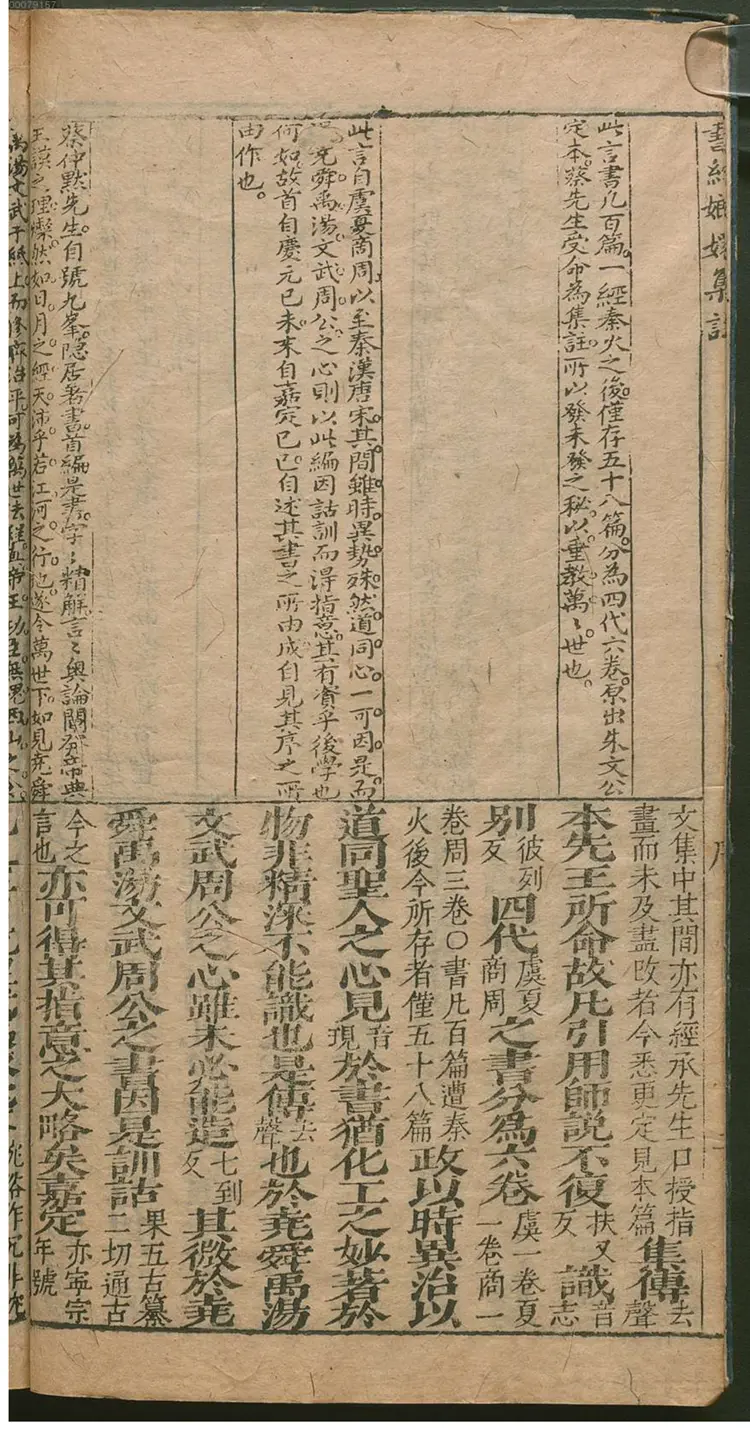 00079157
書經嫏嬛集註
序
此言書凡百篇。一經秦火之後。僅存五十八篇。分為四代六卷。原出朱文公
定本。蔡先生受命為集註。所以發未發之秘。以重教萬〻世也。
此言自虞夏商周以至秦漢唐宋。其間雖時異勢殊。然道同心一。可因是而
堯舜禹湯文武周公之心。則以此編因詁訓而得指意。其有資乎後學也
何如。故首自慶元已未。末自嘉定已巳。自述其書之所由成。自見其序之所
由作也。
蔡仲默先生。自號九峯。隱居著書。首編是書。字〻精解。言〻奥論。闡發帝典
王謨之理。燦然如日月之經天。沛乎若江河之行也。遂令萬世下。如見堯舜
禹湯文武于紙上。而修齊治平可為萬世法程。
文集中其間亦有經承先生口授指
畫而未及盡改者今悉更定見本篇
集傳去聲
本先王所命故凡引用師説不復扶又反識音志
別彼列反四代虞夏商周之書分為六卷虞一卷夏一卷商一
卷周三卷○書凡百篇遭秦
火後今所存者僅五十八篇
政以時異治以
道同聖人之心見音現於書猶化工之妙著於
物非精深不能識也是傳去聲也於堯舜禹湯
文武周公之心雖未必能造七到反其微於堯
舜禹湯文武周公之書因是訓詁果五古纂二切通古
今之言也亦可得其指意之大略矣嘉定亦寧宗年號